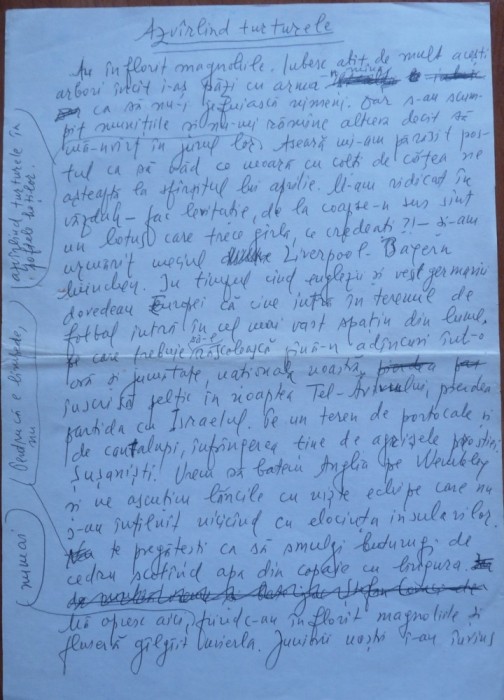 Azvîrlind turturele
Au înflorit magnoliile. Iubesc atît de mult acești
arbori încît i-aș păzi cu arma în mînă
ca să nu-i jefuiască nimeni. Dar s-au scum-
pit munițiile și nu-mi rămîne altceva decît să
mă-nvîrt în jurul lor. Aseară mi-am părăsit pos-
tul ca să văd ce moară cu colți de cățea ne
așteaptă la sfîrșitul lui aprilie. M-am ridicat în
văzduh – fac levitație, de la coapse-n sus sînt
un lotus care trece gîrla, ce credeați?! – și-am
urmărit meciul Liverpool-Bayern
München. În timpul cînd englezii și vest germanii
dovedeau Europei că cine intră în terenul de
fotbal intră în cel mai vast spațiu din lume,
pe care trebuie să-l răscolească pînă-n adîncuri într-o
oră și jumătate, naționala noastră,
înscrisă în noaptea Tel-Avivului, pierdea
partida cu Israelul. Pe un teren de portocale și
de cantalupi, înfrîngerea ține de
Șușaniști. Vrem să batem Anglia pe Wembley
și ne ascuțim lăncile cu niște echipe care nu
s-au întîlnit nicicînd cu elocința insularilor
te pregătești ca să smulgi buturugi de
cedru scoțînd apa din copaie cu lingura.
Mă opresc aici, fiindc-au înflorit magnoliile și
fluieră gîlgîit mierla. Juniorii noștri i-au învins
azvîrlind turturele în
portțile hoților.
Pentru că e limpede,
nu
numai